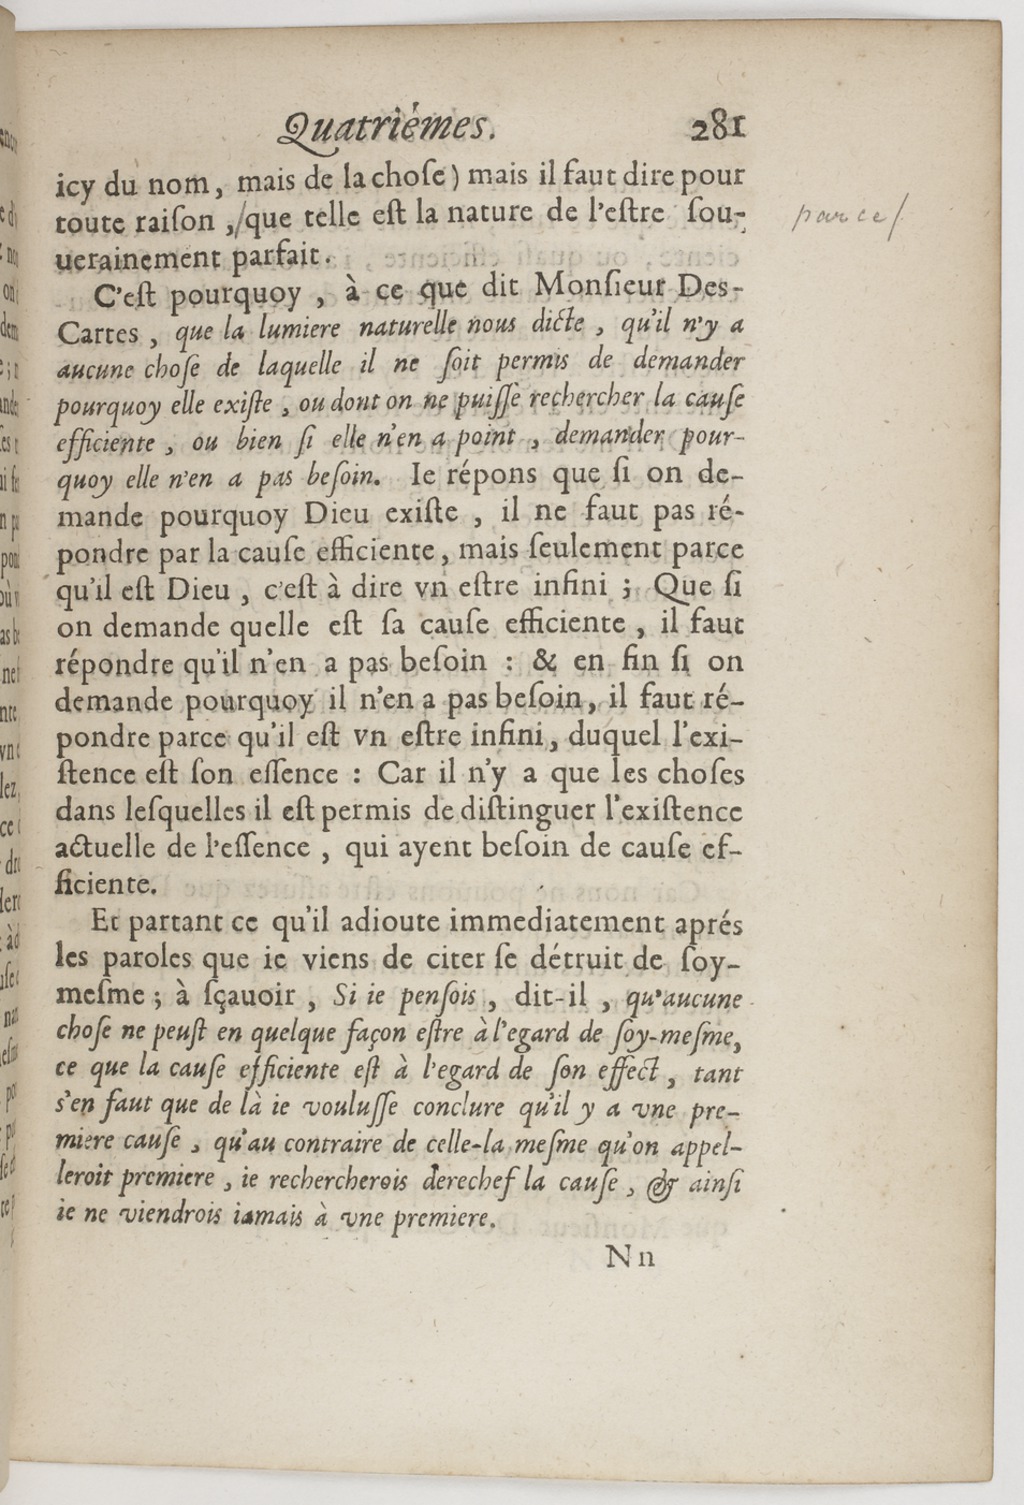 Quatriémes. 281
icy du nom, mais de la choſe) mais il faut dire pour
toute raiſon ,/que telle eſt la nature de l'eſtre ſou-
parce/
uerainement parfait.
C'eſt pourquoy , à ce que dit Monſieur Deſ-
Cartes , que la lumiere naturelle nous dicte , qu'il n'y a
aucune choſe de laquelle il ne ſoit permis de demander
pourquoy elle exiſte , ou dont on ne puiſſe rechercher la cauſe
efficiente , ou bien ſi elle n'en a point , demander pour-
quoy elle n'en a pas beſoin. Ie répons que ſi on de-
mande pourquoy Dieu exiſte , il ne faut pas ré-
pondre par la cauſe efficiente, mais ſeulement parce
qu'il eſt Dieu , c'eſt à dire vn eſtre infini ; Que ſi
on demande quelle eſt ſa cauſe efficiente , il faut
répondre qu'il n'en a pas beſoin : & en fin ſi on
demande pourquoy il n'en a pas beſoin, il faut ré-
pondre parce qu'il eſt vn eſtre infini, duquel l'exi-
ſtence eſt ſon eſſence : Car il n'y a que les choſes
dans leſquelles il eſt permis de diſtinguer l'exiſtence
actuelle de l'eſſence , qui ayent beſoin de cauſe ef-
ficiente.
Et partant ce qu'il adioute immediatement aprés
les paroles que ie viens de citer ſe détruit de ſoy-
meſme ; à ſçauoir , Si ie penſois , dit-il , qu'aucune
choſe ne peuſt en quelque façon eſtre à l'egard de ſoy-meſme,
ce que la cauſe efficiente eſt à l'egard de ſon effect , tant
s'en faut que de là ie vouluſſe conclure qu'il y a vne pre-
miere cauſe , qu'au contraire de celle-la meſme qu'on appel-
leroit premiere , ie rechercherois derechef la cauſe , & ainſi
ie ne viendrois iamais à vne premiere.
Nn